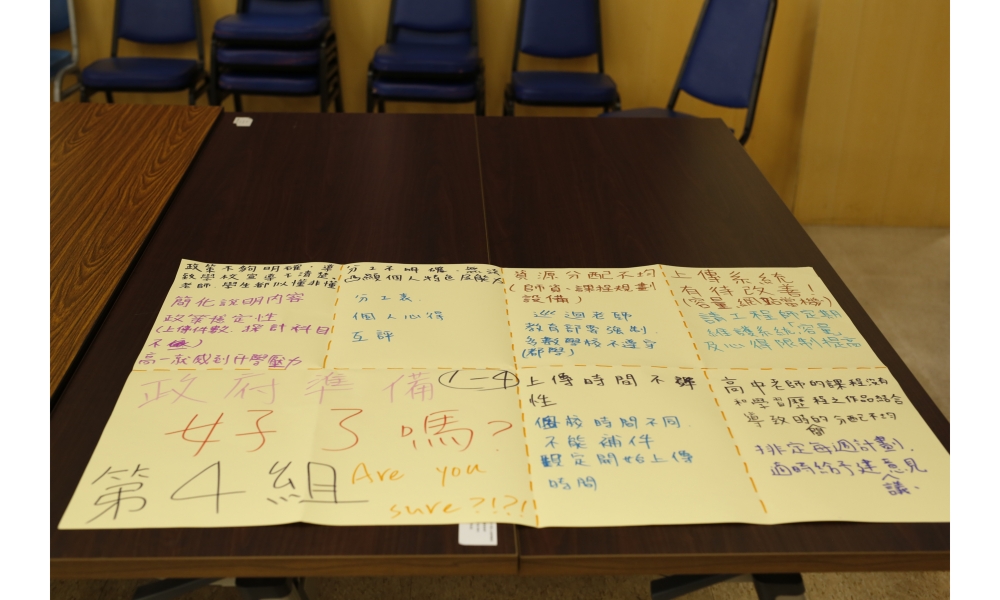 政策不夠明確，導
致學校宣導不清楚、
老師、學生都似懂非懂
簡化說明內容
政策穩定性
(上傳件數、採計科目
高一就感到升學壓力
分工不明確，無法
凸顯個人特色及能力
分工表、
個人心得
互評
資源分配不均
(師資、課程規劃
設備)
巡迴老師
教育部需強制
多數學校不遵守
(都學)
上傳系統
有待改善!
(容量、網點當機)
請工程師定期
維護系統、容量
及心得限制提高
政府準備
好了嗎?
第4組
Are you
sure?!?!!
(1-4)
上傳時間不彈
性
個校時間不同
不能補件
設定開始上傳
時間
高中老師的課程沒有
和學習歷程之作品結合
導致時的分配不均
排定每週計劃，
適時給予建意見
議.